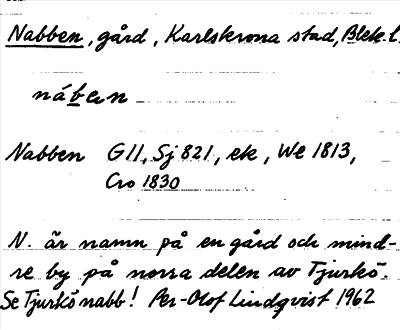 Nabben, gård, Karlskrona stad, Blek. l.
náben
Nabben G11, Sj 821, ek, We 1813,
Cro 1830
N. är namn på en gård och mind-
re by på norra delen av Tjurkö.
Se Tjurkö nabb! Per-Olof Lindqvist 1962